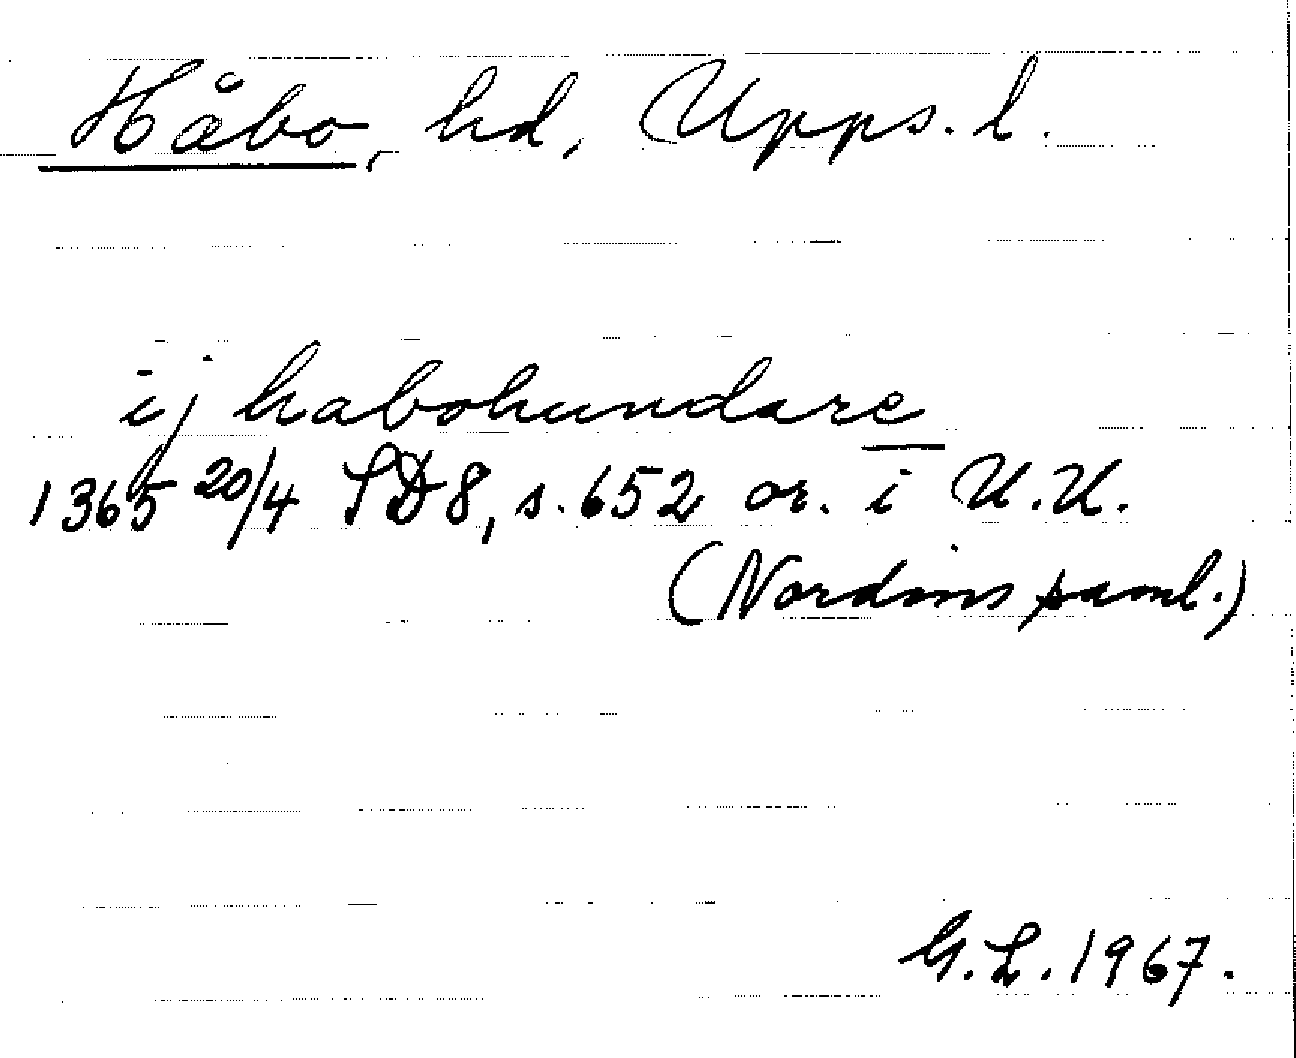 Håbo, hd, Upps. l.
ij habohundare
1365 20/4 SD8, s. 652 or. i U.U.
(Nordins saml.)
G.L. 1967.